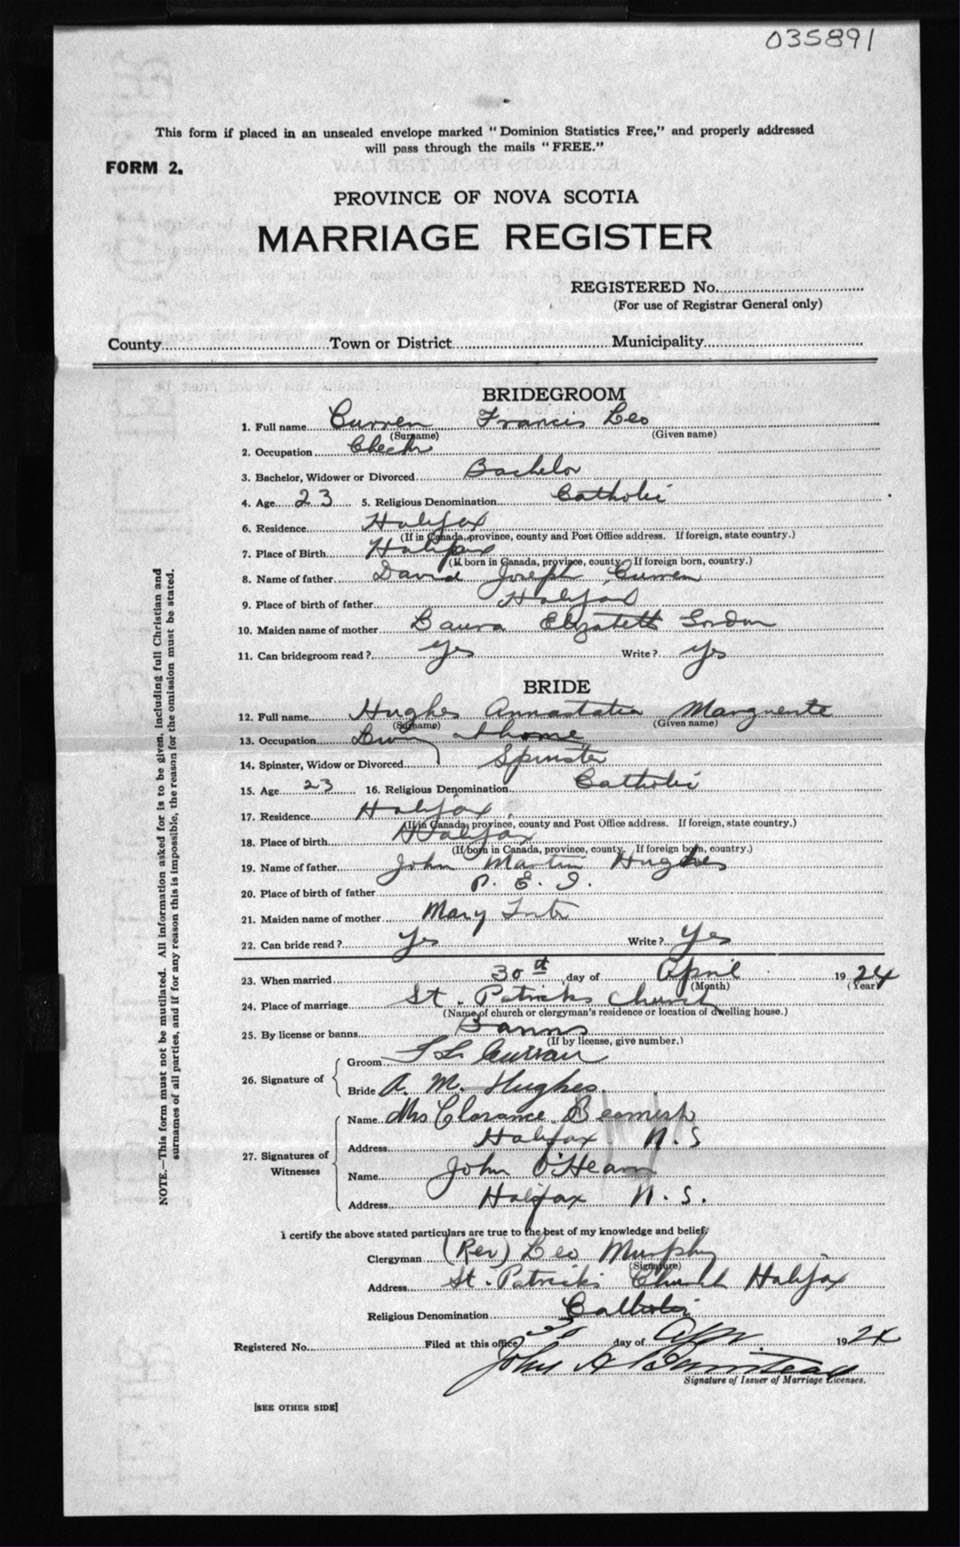 035891
This form if placed in an unsealed envelope marked "Dominion Statistics Free," and properly addressed
will pass through the mails "FREE."
FORM 2.
PROVINCE OF NOVA SCOTIA
MARRIAGE REGISTER
REGISTERED No.
(For use of Registrar General only)
County Town or District Municipality
BRIDEGROOM
1. Full name Curren Francis Leo
(Surname) (Given name)
2. Occupation Checkr
3. Bachelor, Widower or Divorced Bachelor
4. Age 23 5. Religious Denomination Catholic
6. Residence Halifax
(If in Canada, province, county and Post Office address. If foreign, state country.)
7. Place of Birth Halifax
(If born in Canada, province, county. If foreign born, country.)
8. Name of father David Joseph Curren
9. Place of birth of father Halifax
10. Maiden name of mother Laura Elizabeth
11. Can bridegroom read? Yes Write? Yes
BRIDE
12. Full name Hughes Annastatia Marguerite
(Surname) (Given name)
13. Occupation home
14. Spinster, Widow or Divorced Spinster
15. Age 23 16. Religious Denomination Catholic
17. Residence Halifax
(If in Canada, province, county and Post Office address. If foreign, state country.)
18. Place of birth Halifax
(If born in Canada, province, county. If foreign born, country.)
19. Name of father John Martin Hughes
20. Place of birth of father P. E. I.
21. Maiden name of mother Mary
22. Can bride read? Yes Write? Yes
23. When married 30th day of April 1924
(Month) (Year)
24. Place of marriage St. Patricks Church
(Name of church or clergyman's residence or location of dwelling house.)
25. By license or banns Banns
(If by license, give number.)
26. Signature of
Groom F L Curran
Bride A. M. Hughes
27. Signatures of Witnesses
Name Mrs Clarance Beamish
Address Halifax N.S
Name John O'Hearn
Address Halifax N.S.
I certify the above stated particulars are true to the best of my knowledge and belief,
Clergyman (Rev) Leo Murphy
(Signature)
Address St. Patricks Church Halifax
Religious Denomination Catholic
Registered No. Filed at this office 30 day of Apr. 1924
John A
Signature of Issuer of Marriage Licenses.
[SEE OTHER SIDE]
NOTE.—This form must not be mutilated. All information asked for is to be given, including full Christian and
surnames of all parties, and if for any reason this is impossible, the reason for the omission must be stated.